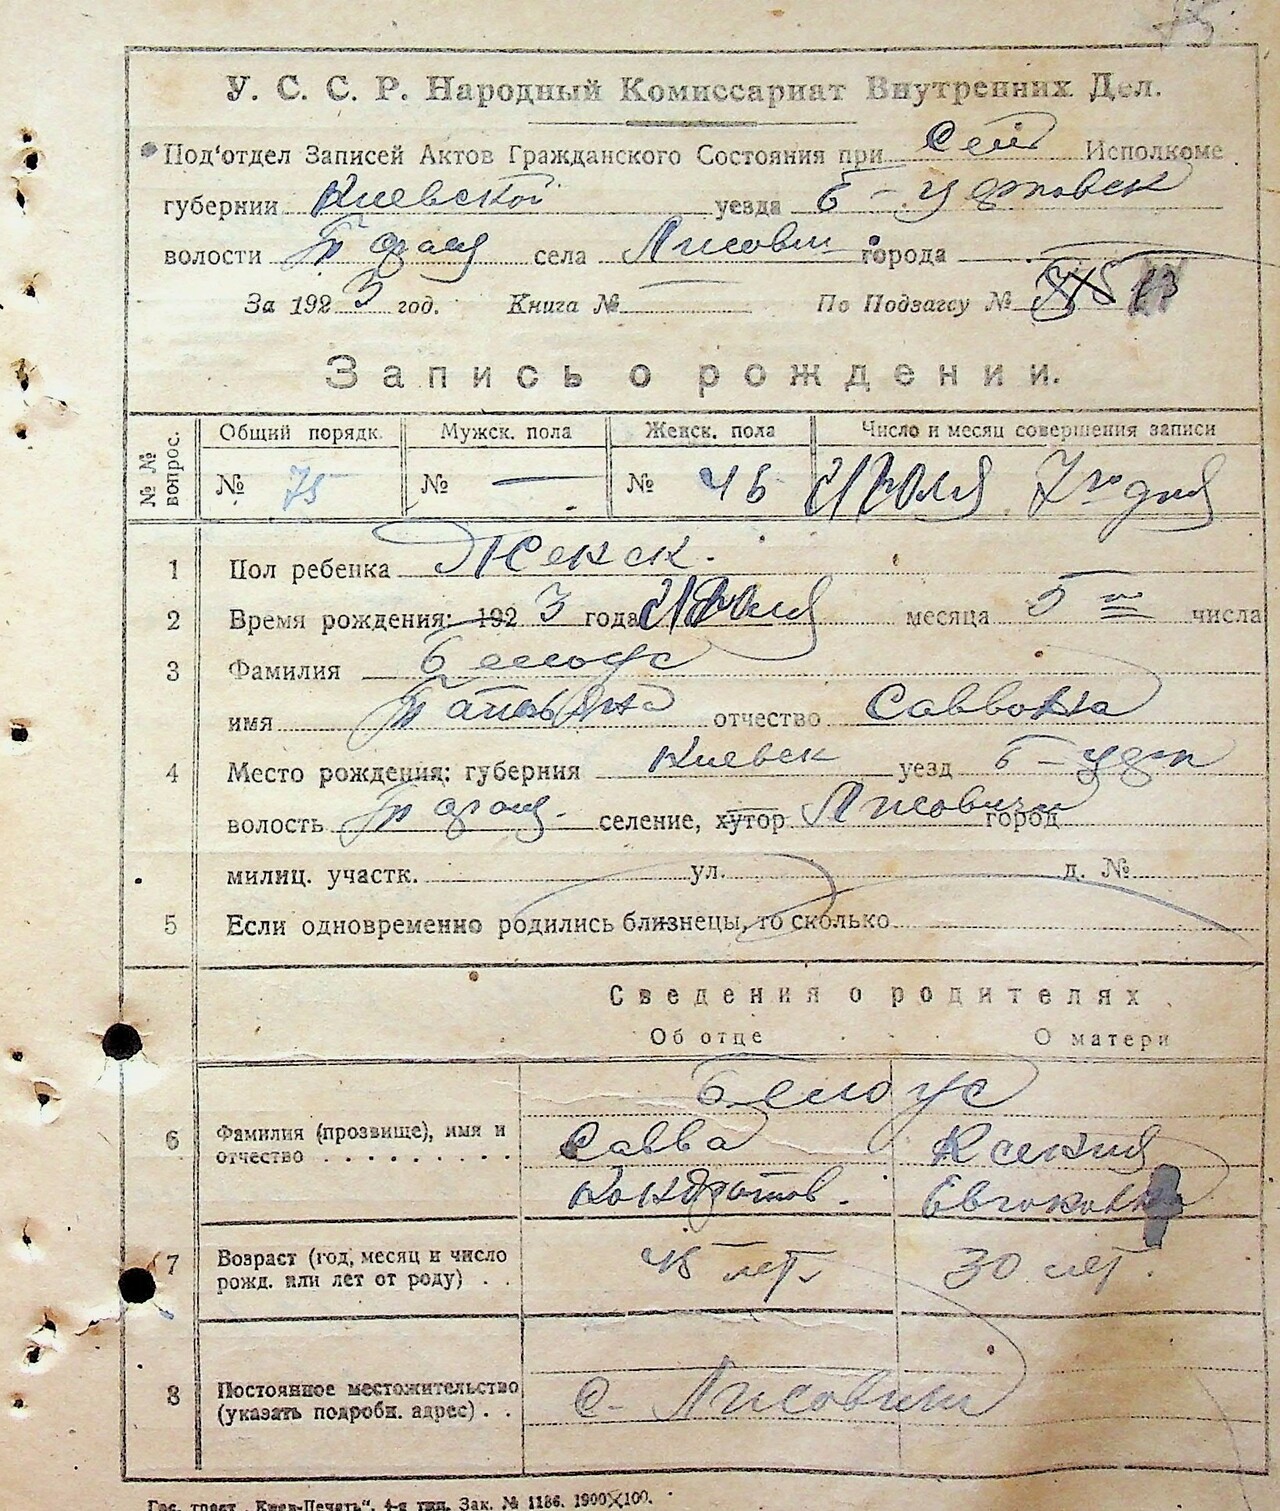 У. С. С. Р. Народный Комиссариат Внутренних Дел.
Под'отдел Записей Актов Гражданского Состояния при Сель Исполкоме
губернии Киевской уезда Б-Церковск
волости села Лисовичи города
За 1923 год. Книга № По Подзагсу №
Запись о рождении.
№ № вопрос. Общий порядк. Мужск. пола Женск. пола Число и месяц совершения записи
№ 75 № — № 46 Июля 7го дня
1 Пол ребенка Женск.
2 Время рождения: 1923 года Июля месяца 5го числа
3 Фамилия Белоус
имя Татьяна отчество Саввовна
4 Место рождения: губерния Киевск уезд Б-Церк
волость селение, хутор Лисовичи город
милиц. участк. ул. д. №
5 Если одновременно родились близнецы, то сколько
Сведения о родителях
Об отце О матери
Белоус
6 Фамилия (прозвище), имя и Савва Ксения
отчество . . . . . . . . . Кондратов.
7 Возраст (год, месяц и число 45 лет 30 лет.
рожд. или лет от роду) . .
8 Постоянное местожительство с. Лисовичи
(указать подробн. адрес) . .
Гос. трест „Киев-Печать“, 4-я тип. Зак. № 1186. 1900×100.